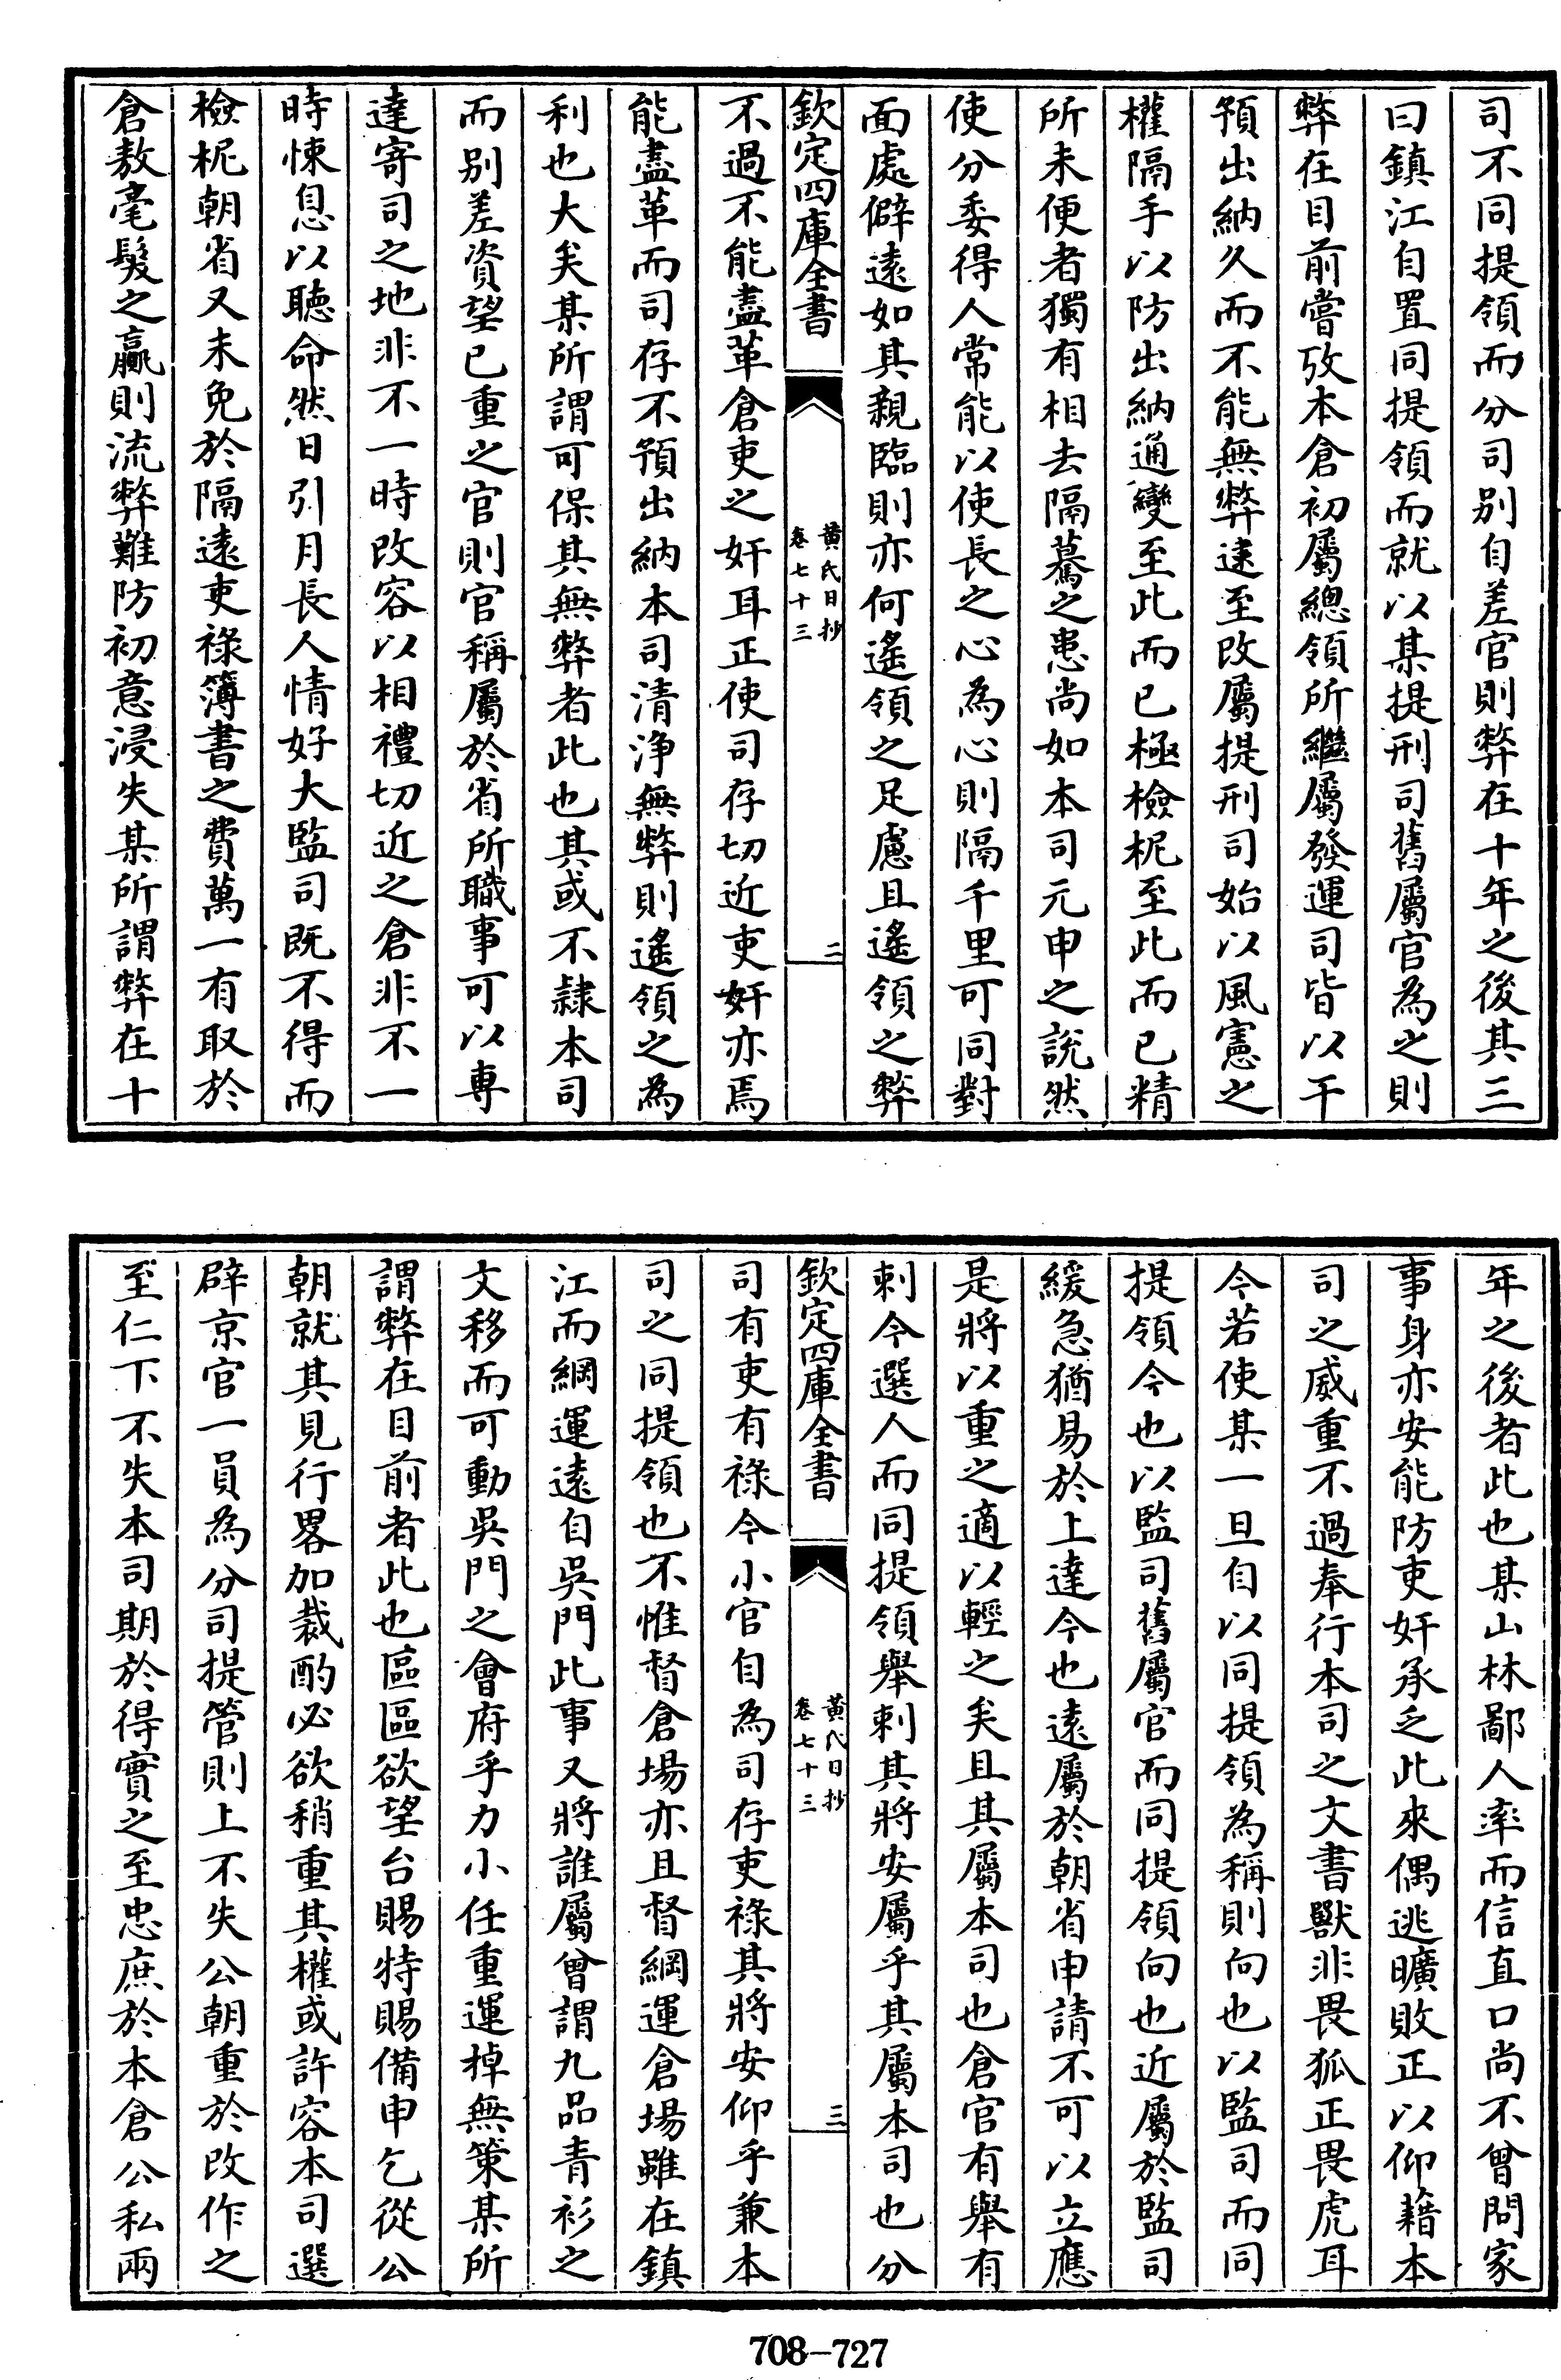 司不同提領而分司别自差官則弊在十年之後其三
曰鎮江自置同提領而就以某提刑司舊屬官為之則
弊在目前嘗攷本倉初屬總領所繼屬發運司皆以干
預出納久而不能無弊逮至改屬提刑司始以風憲之
權隔手以防出納通變至此而已極檢柅至此而已精
所未便者獨有相去隔驀之患尚如本司元申之說然
使分委得人常能以使長之心為心則隔千里可同對
面處僻遠如其親臨則亦何遙領之足慮且遙領之弊
欽定四庫全書
黄氏日抄
卷七十三
二
不過不能盡革倉吏之奸耳正使司存切近吏奸亦焉
能盡革而司存不預出納本司清浄無弊則遙領之為
利也大矣某所謂可保其無弊者此也其或不隷本司
而别差資望已重之官則官稱屬於省所職事可以專
達寄司之地非不一時改容以相禮切近之倉非不一
時悚息以聽命然日引月長人情好大監司既不得而
檢柅朝省又未免於隔遠吏祿簿書之費萬一有取於
倉敖毫髮之贏則流弊難防初意浸失某所謂弊在十
年之後者此也某山林鄙人率而信直口尚不曾問家
事身亦安能防吏奸承乏此來偶逃曠敗正以仰藉本
司之威重不過奉行本司之文書獸非畏狐正畏虎耳
今若使某一旦自以同提領為稱則向也以監司而同
提領今也以監司舊屬官而同提領向也近屬於監司
緩急猶易於上達今也遠屬於朝省申請不可以立應
是將以重之適以輕之矣且其屬本司也倉官有舉有
刺今選人而同提領舉刺其將安屬乎其屬本司也分
欽定四庫全書
黄氏日抄
卷七十三
三
司有吏有祿今小官自為司存吏祿其將安仰乎兼本
司之同提領也不惟督倉場亦且督綱運倉場雖在鎮
江而綱運遠自吳門此事又將誰屬曾謂九品青衫之
文移而可動吳門之會府乎力小任重運掉無策某所
謂弊在目前者此也區區欲望台賜特賜備申乞從公
朝就其見行畧加裁酌必欲稍重其權或許容本司選
辟京官一員為分司提管則上不失公朝重於改作之
至仁下不失本司期於得實之至忠庶於本倉公私兩
708-727